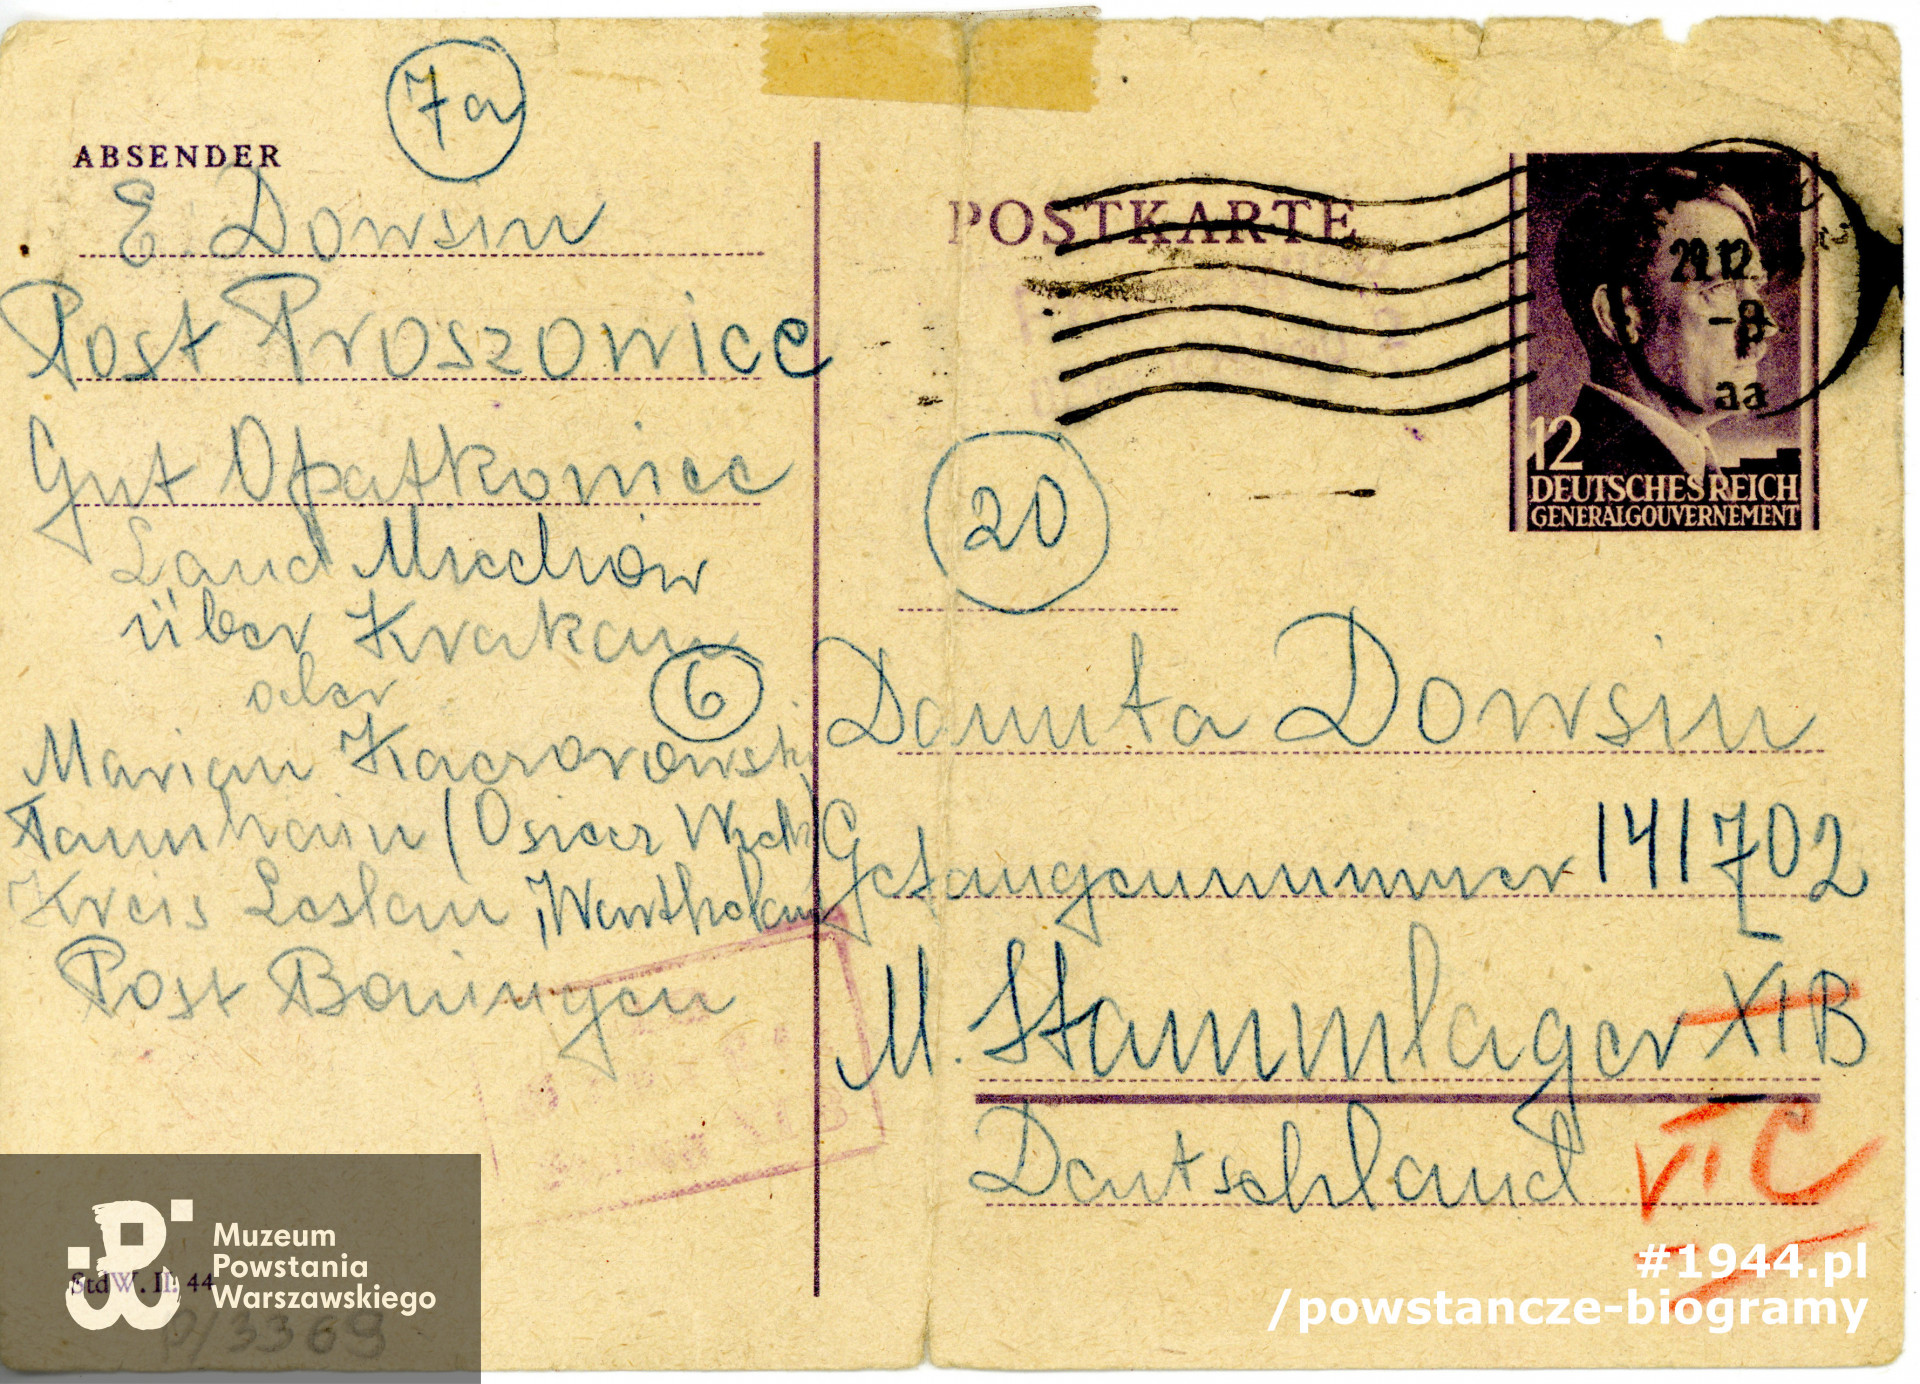 7a
ABSENDER
E. Dowsin
Post Proszowice
Gut Opatkowice
Land Miechów
über Krakau
oder
6
Marian Kaczorowski
Tannhain (Osiecz Wielk)
Kreis Leslau, Warthelan
Post Boningen
StdW. II. 44
P/3369
POSTKARTE
29.12.
-8
aa
12
DEUTSCHES REICH
GENERALGOUVERNEMENT
20
Danuta Dowsin
Gefangennummer 141702
M. Stammlager XIB
Deutschland VI C
Muzeum
Powstania
Warszawskiego
#1944.pl
/powstancze-biogramy